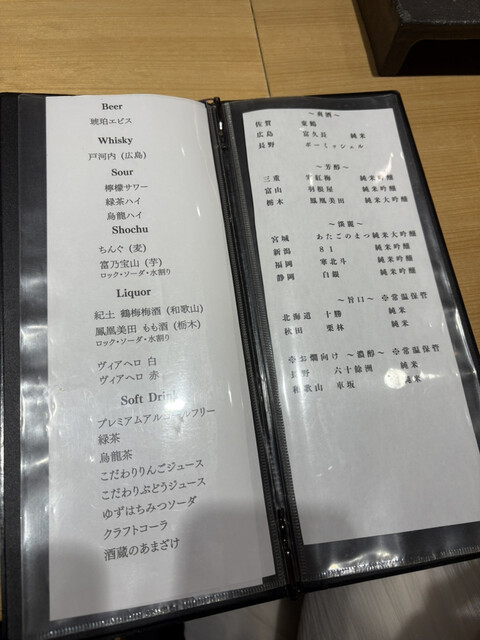 Beer
琥珀エビス
Whisky
戸河内 (広島)
Sour
檸檬サワー
緑茶ハイ
烏龍ハイ
Shochu
ちんぐ (麦)
富乃宝山 (芋)
ロック・ソーダ・水割り
Liquor
紀土 鶴梅梅酒 (和歌山)
鳳凰美田 もも酒 (栃木)
ロック・ソーダ・水割り
ヴィアヘロ 白
ヴィアヘロ 赤
Soft Drink
プレミアムアルコールフリー
緑茶
烏龍茶
こだわりりんごジュース
こだわりぶどうジュース
ゆずはちみつソーダ
クラフトコーラ
酒蔵のあまざけ
～爽酒～
佐賀 東鶴
広島 富久長 純米
長野 ボーミッシェル
～芳醇～
三重 純米吟醸
富山 羽根屋 純米吟醸
栃木 鳳凰美田 純米大吟醸
～淡麗～
宮城 あたごのまつ 純米大吟醸
新潟 81 純米吟醸
福岡 寒北斗 純米吟醸
静岡 白銀 純米吟醸
～旨口～ ✣常温保管
北海道 十勝 純米
秋田 栗林 純米
✣お燗向け ～濃醇～ ✣常温保管
長野 六十餘洲 純米
和歌山 車坂 純米